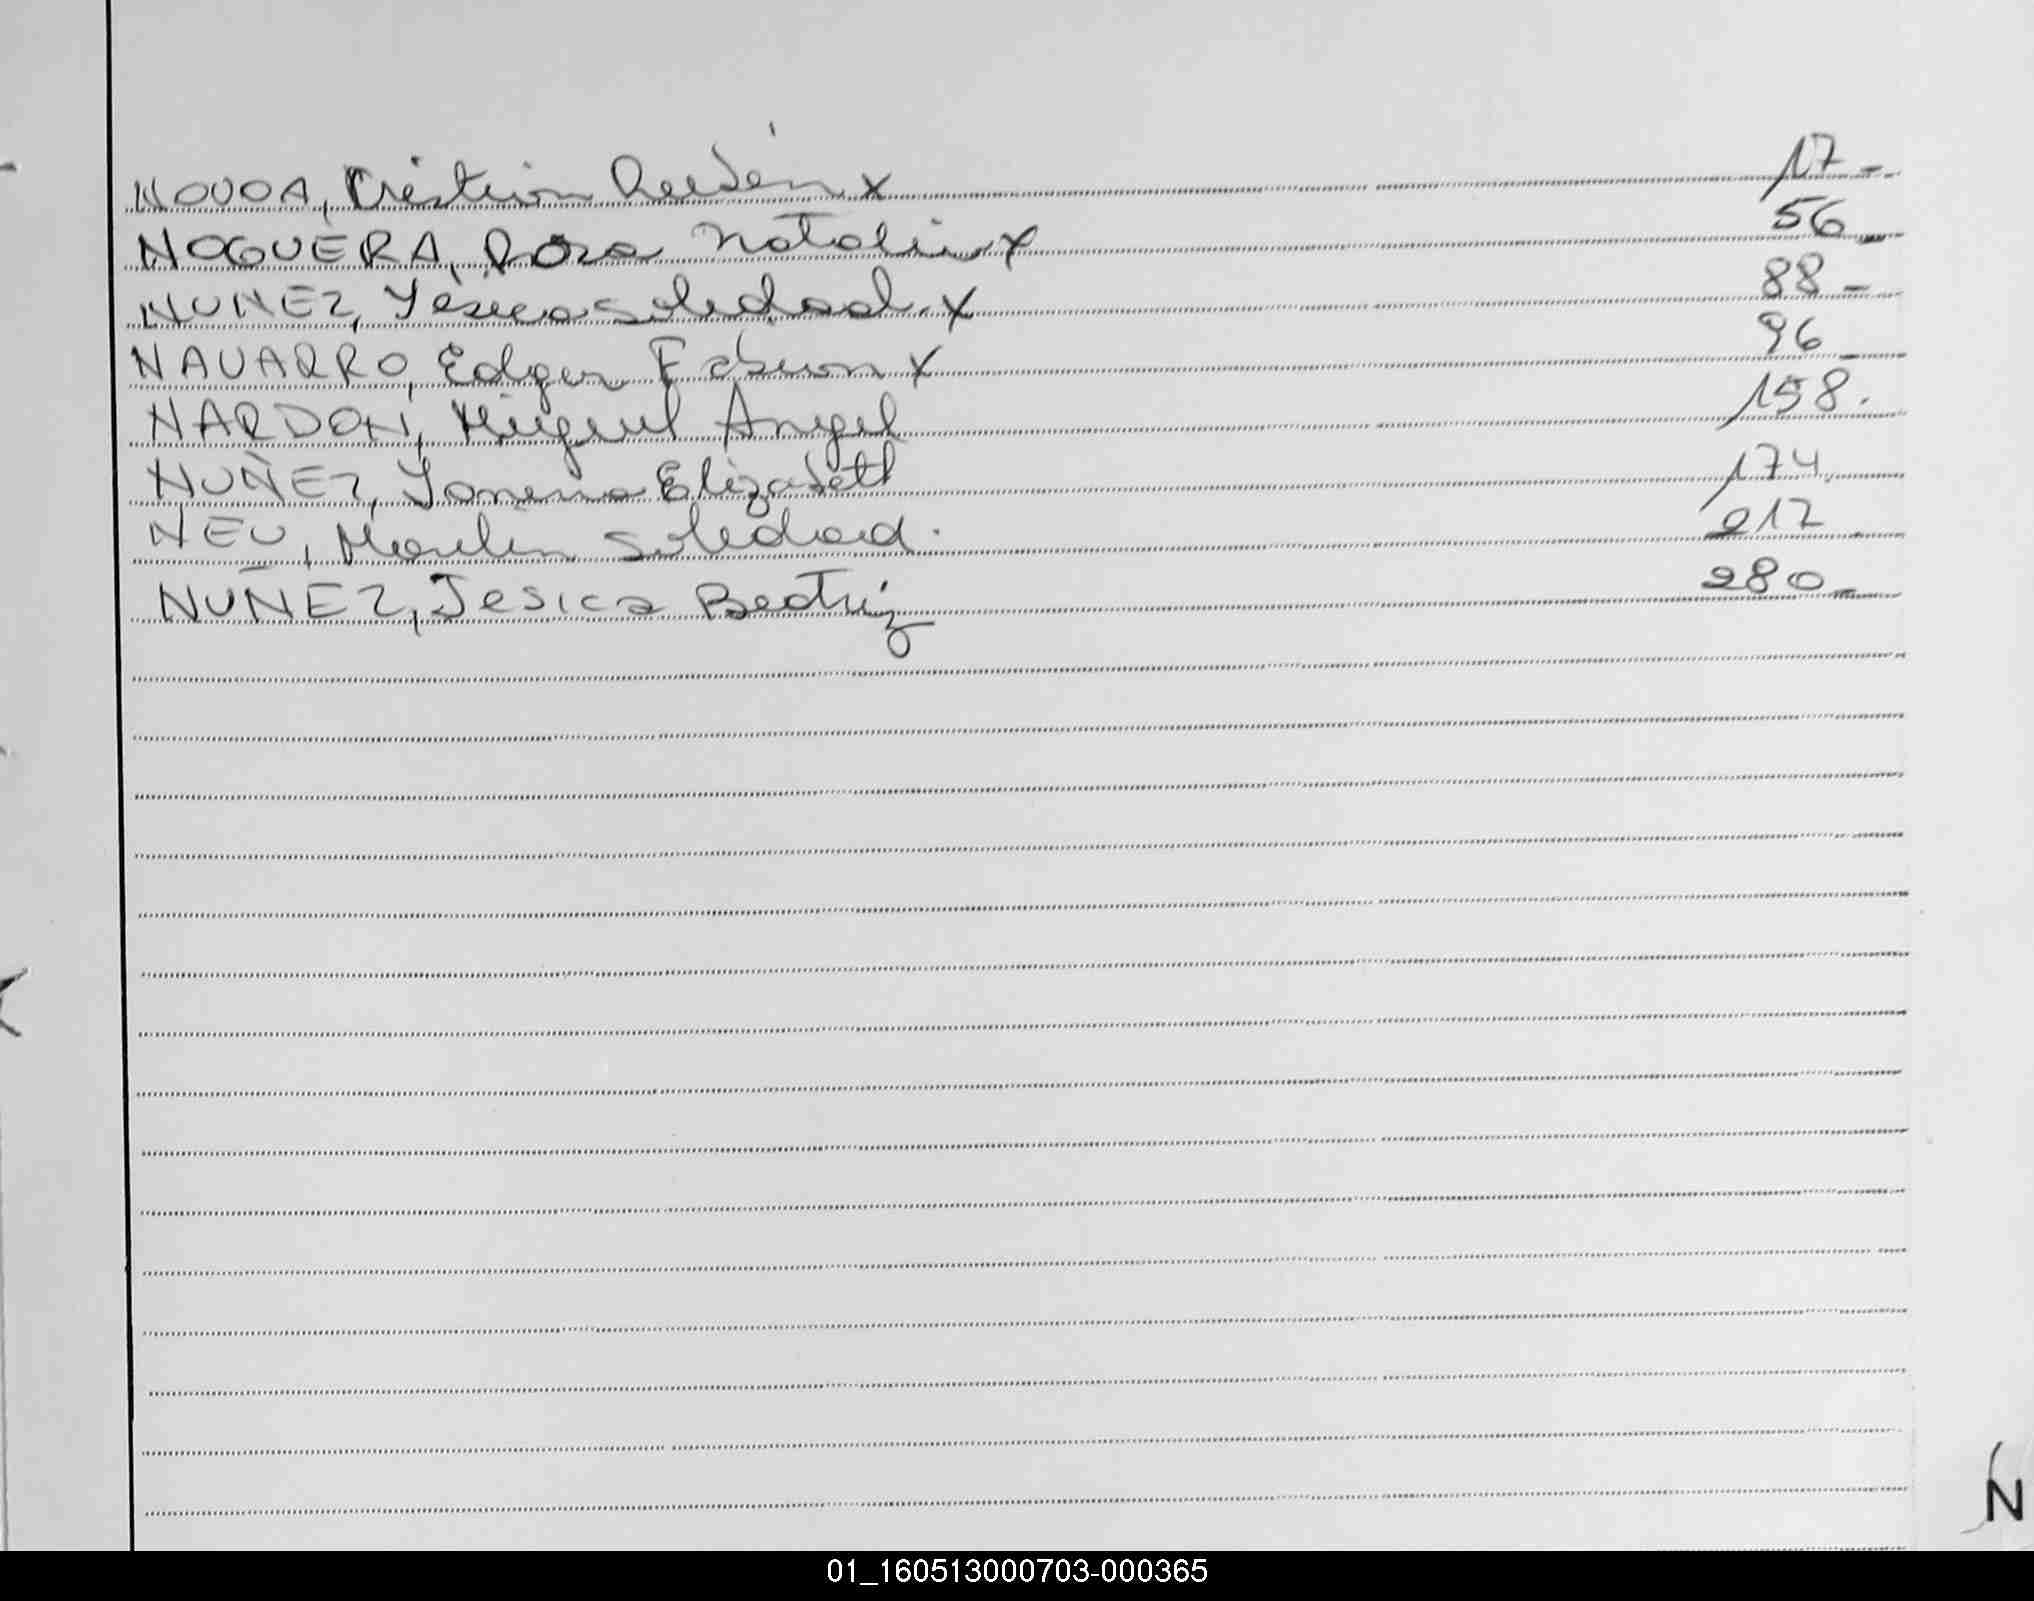 NOVOA, Cristian Rubén x 17-
NOGUERA, Rosa Natalia x 56-
NUÑEZ, Yésica Soledad x 88-
NAVARRO, Edgar Fabian x 96-
NARDON, Miguel Angel 158.
NUÑEZ, Yanina Elizabeth 174.
NEU, Soledad. 217-
NUÑEZ, Jesica Beatriz 280-
N
01_160513000703-000365